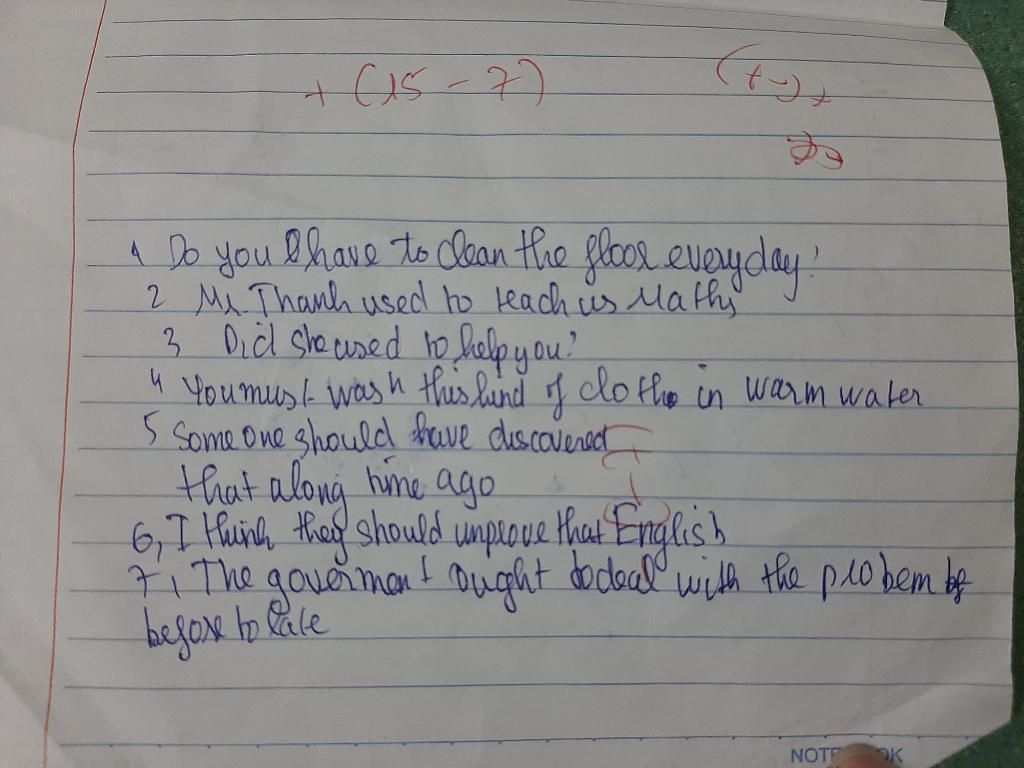 + (15 - 7)
1 Do you have to clean the floor everyday?
2 Mr Thanh used to teach us Maths
3 Did she used to help you?
4 You must wash this kind of cloth in warm water
5 Some one should have discovered
that along time ago
6, I think they should unprove that English
7, The goverment ought to deal with the probem
before to late
NOTE OK